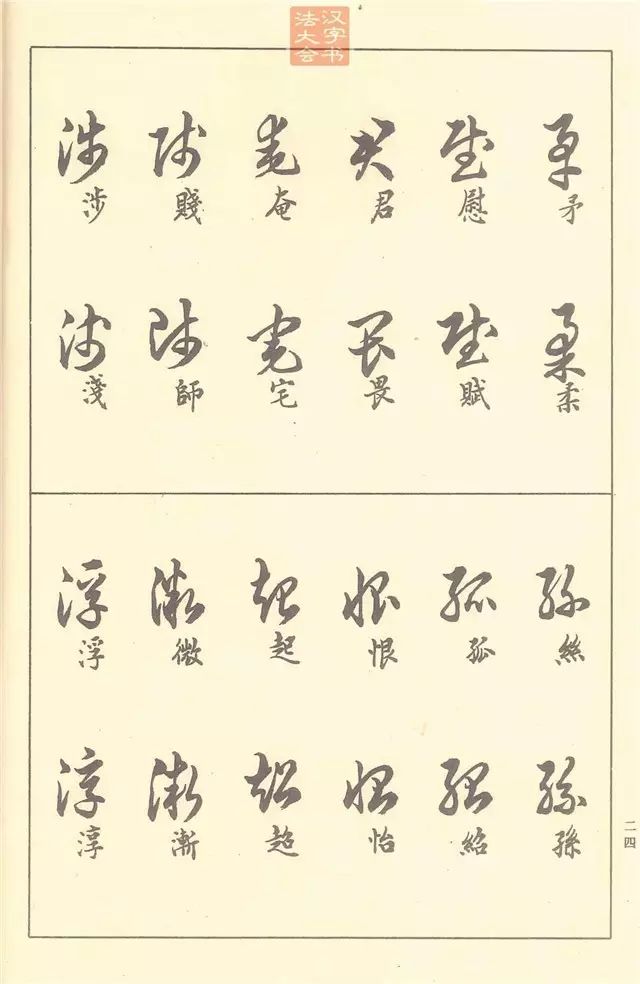 汉字书
法大会
矛 矛 柔 柔
慰 慰 賦 賦
君 君 畏 畏
奄 奄 宅 宅
賤 賤 師 師
涉 涉 淺 淺
絲 絲 孫 孫
孤 孤 紹 紹
恨 恨 怡 怡
起 起 超 超
微 微 漸 漸
浮 浮 淳 淳
二四